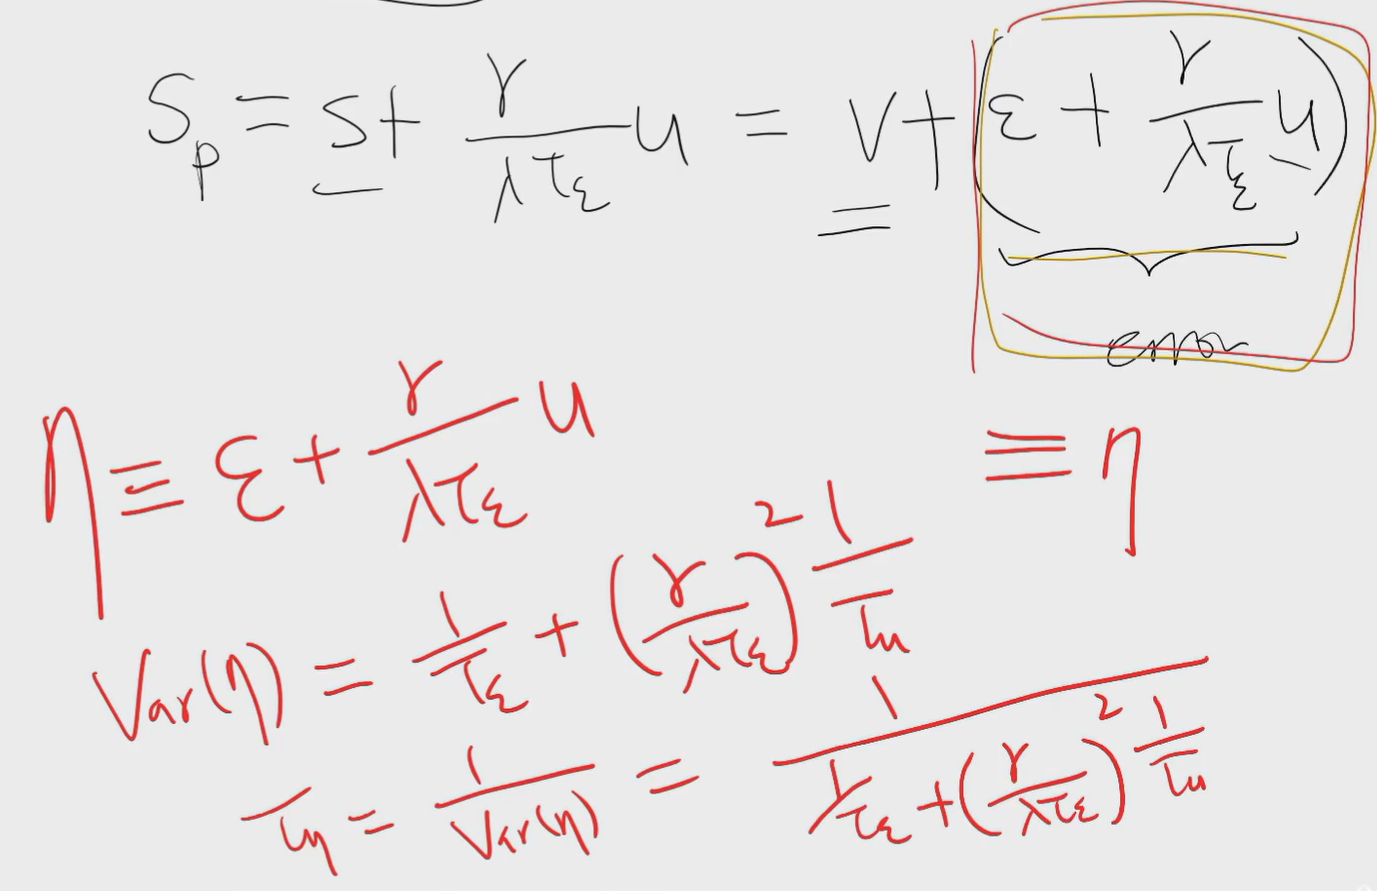 S_p = s + γ/(λτ_ε) u = v + (ε + γ/(λτ_ε) u)
error
η ≡ ε + γ/(λτ_ε) u
≡ η
Var(η) = 1/τ_ε + (γ/(λτ_ε))² 1/τ_u
τ_η = 1/Var(η) = 1/(1/τ_ε + (γ/(λτ_ε))² 1/τ_u)